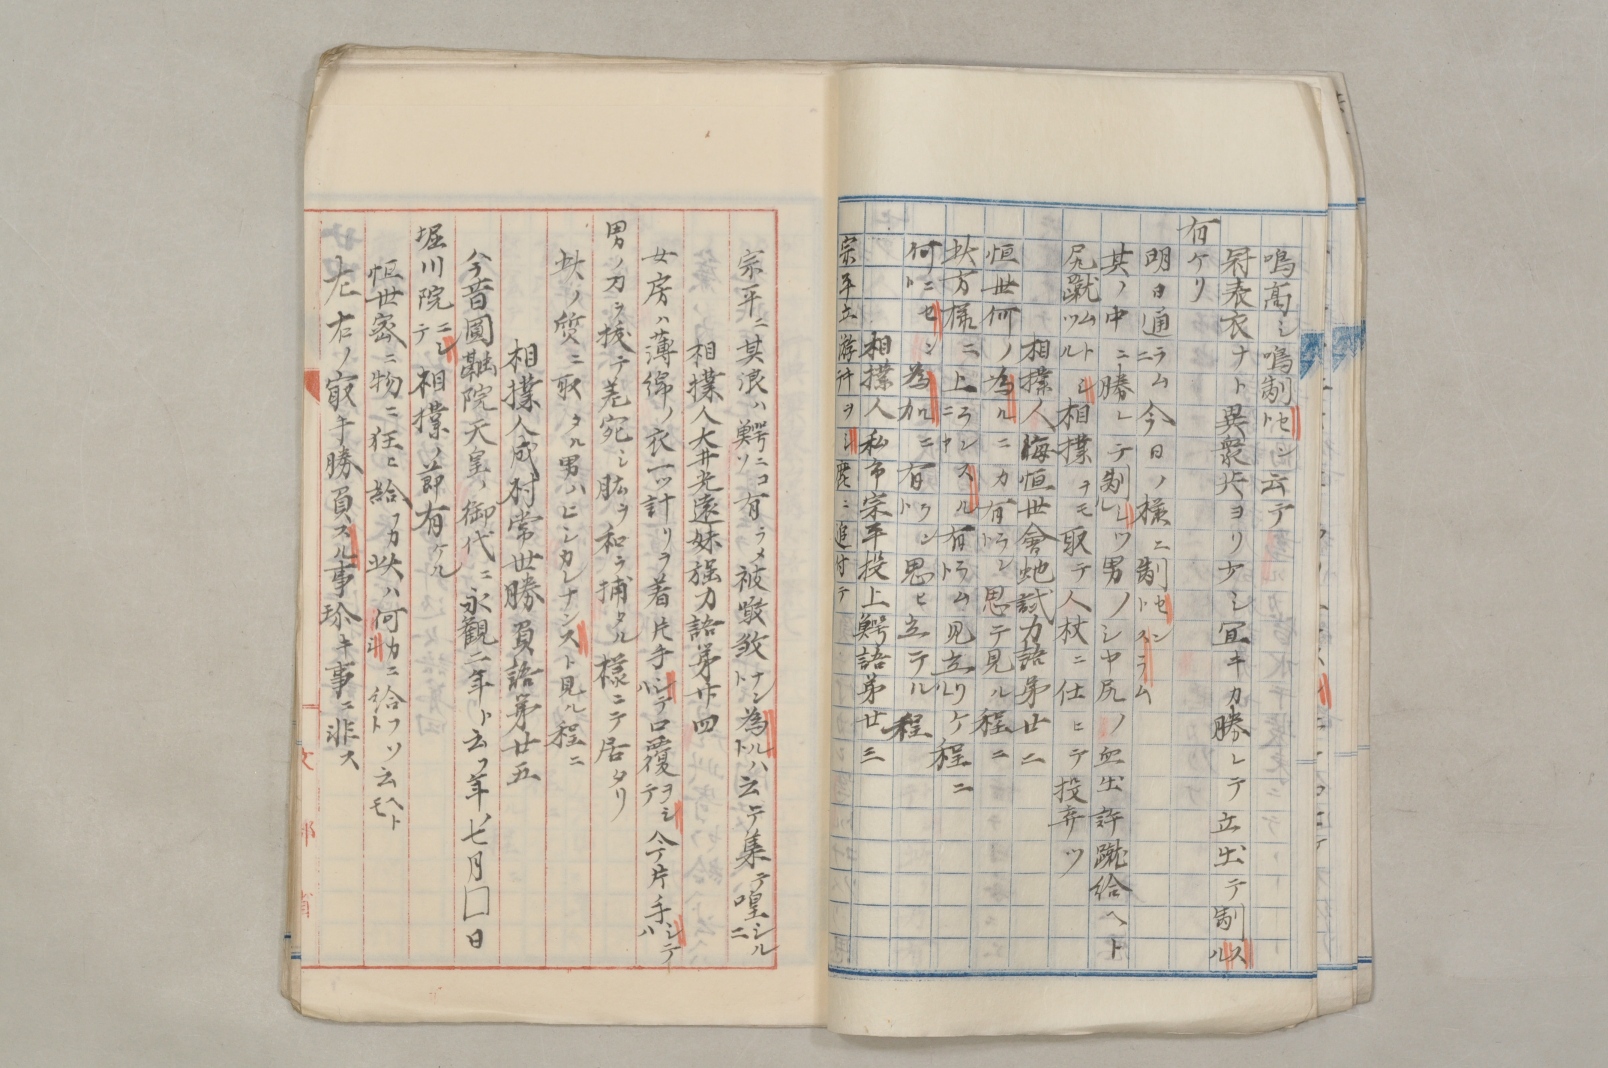 鳴高シ鳴制セヨシ云テ
冠表衣ナト異衆共ヨリ少シ宜キカ勝レテ立出テ制スル
有ケリ
明日通ラム今日ノ様ニ制セン
其ノ中ニ勝レテ制シツ男ノシヤ尻ノ血出許蹴給ヘト
尻蹴ツルムトシ相撲ヲモ取テ人杖ニ仕ヒテ投弃ツ
相撲人海恒世會虵試力語第廿二
恒世何ノ為ルニカ有ラント思テ見ル程ニ
此方様ニ上ランスル有ラムト見立リケル程ニ
何ニセント為ルニカ有ラント思ヒ立テル程
相撲人私市宗平投上鰐語第廿三
宗平立游汁ヲシ陸ニ追付テ
宗平ニ其浪ハ鰐ニコソ有ラメ被噉致ナント為ルハト云テ集テ喤シルニ
相撲人大井光遠妹強力語第廿四
女房ハ薄綿ノ衣一ツ計リヲ着片手シテハ口覆ヲシテ今片手シテハ
男ノ刀ヲ拔テ差宛シ肱ヲ和ラ捕タル様ニテ居タリ
此ノ質ニ取タル男ハヒシカレナンスト見ル程ニ
相撲人成村常世勝負語第廿五
今昔圓融院天皇ノ御代ニ永観二年ト云フ年ノ七月□日
堀川院ニシテ相撲ノ節有ケル
恒世密ニ物ニ狂ヒ給フカ此ハ何カニ給フソト云ヘトモ
左右ノ最手勝負スル事珍キ事ニ非ス
文部省